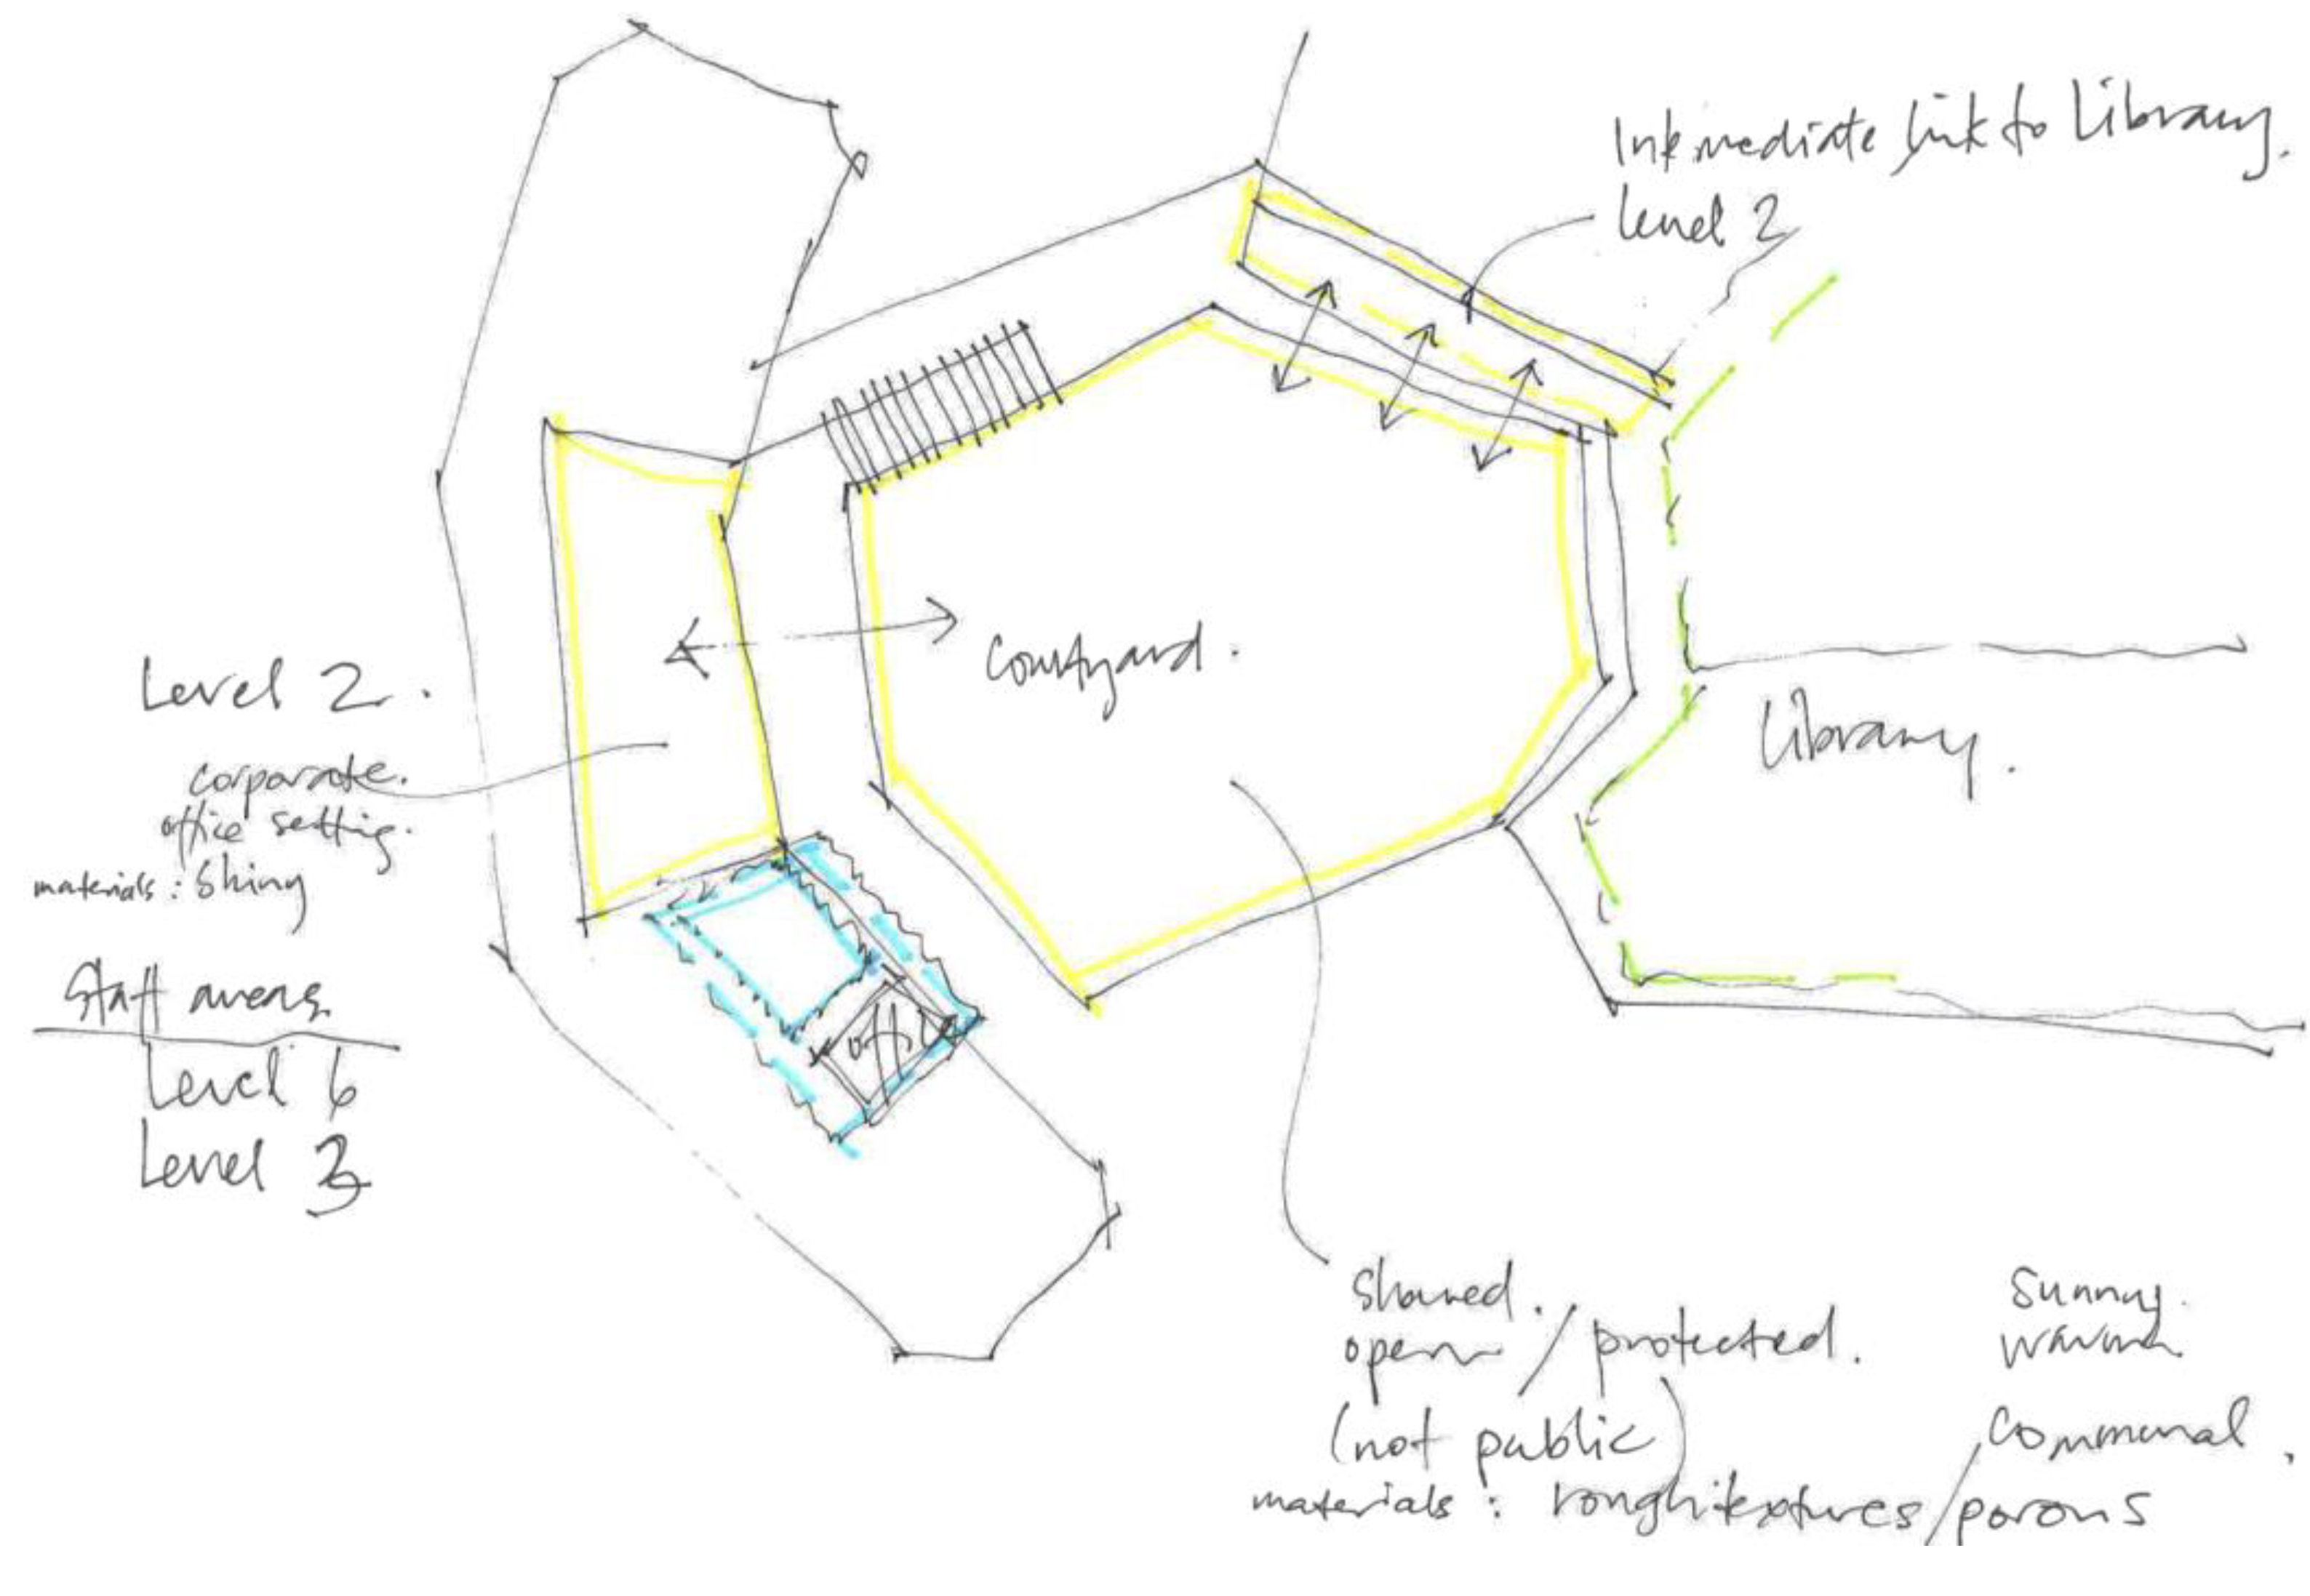 Intermediate link to Library.
Level 2
Courtyard.
Library.
Level 2.
corporate.
office setting.
materials: Shiny
Staff areas
Level 6
Level 3
office
Shared.
open / protected.
(not public)
materials: rough textures / porous
Sunny.
warm
Communal.